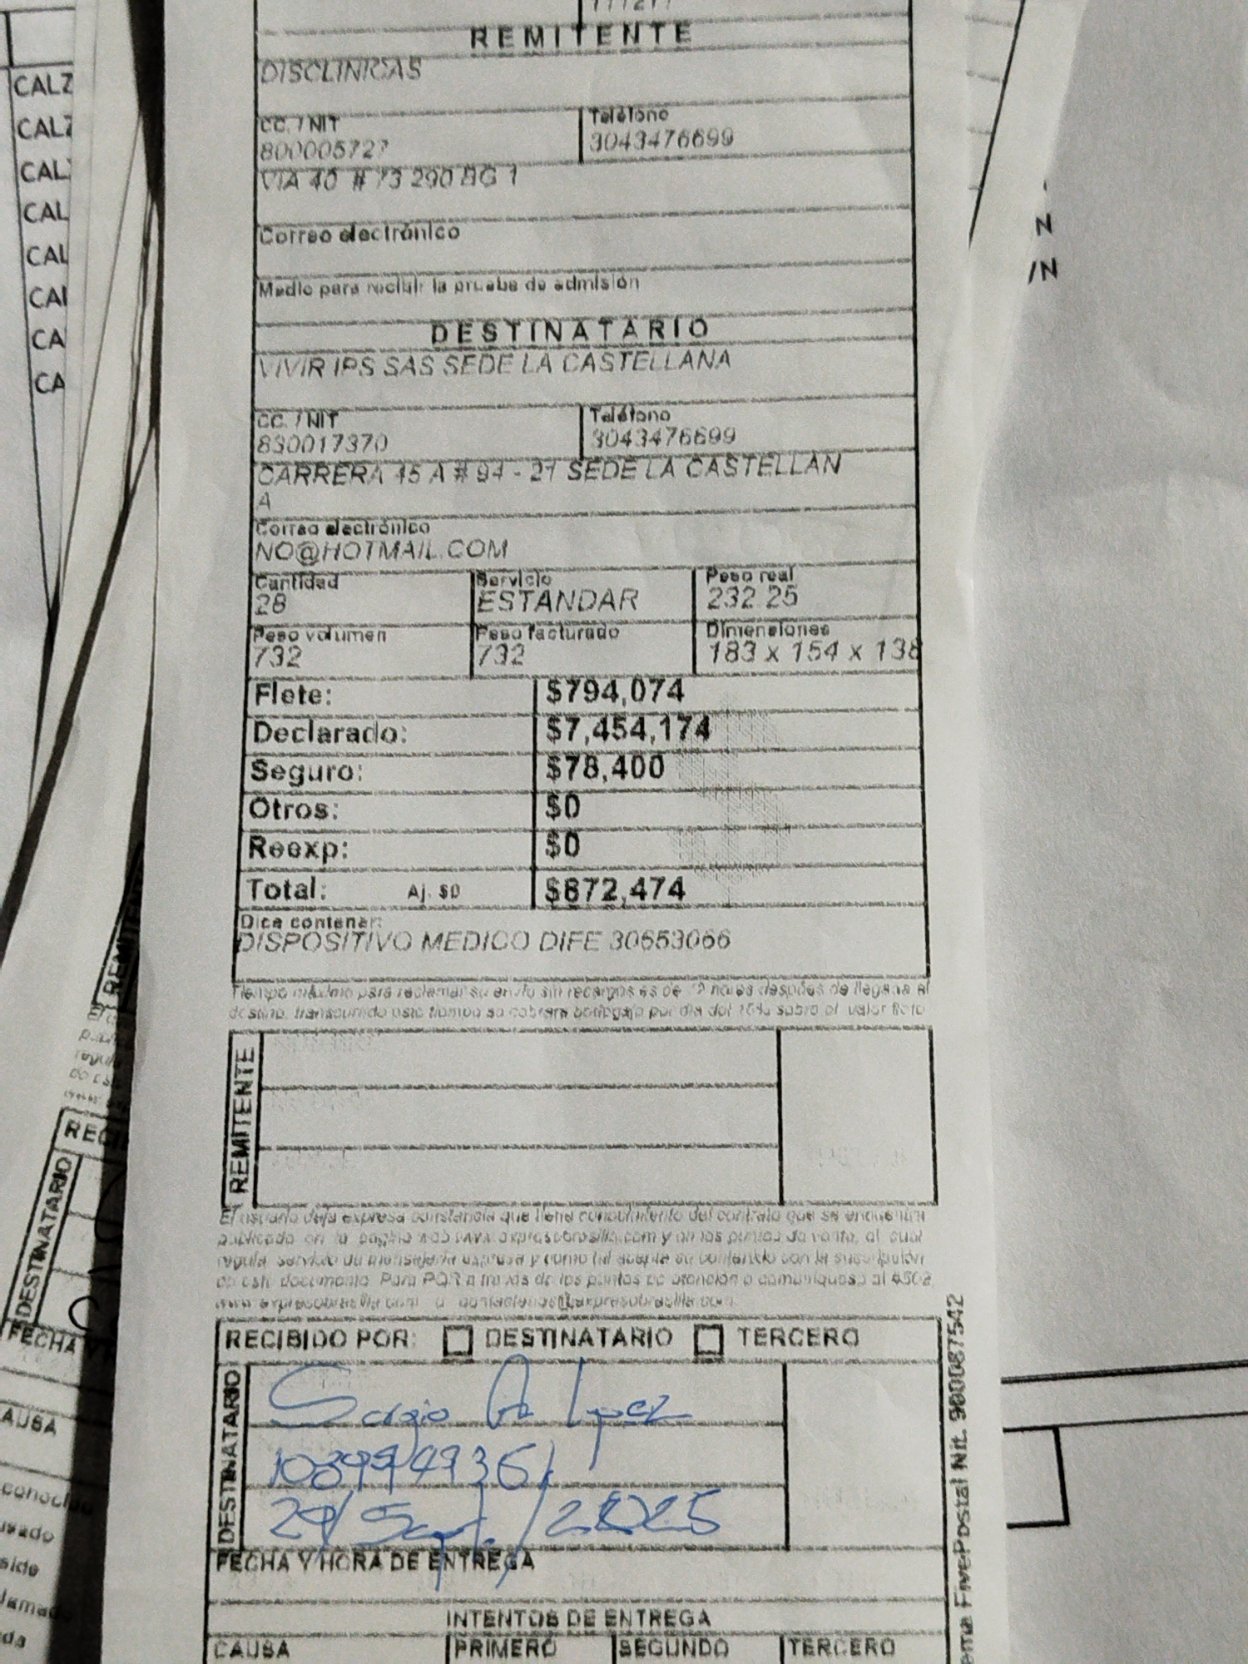 REMITENTE
DISCLINICAS
CC. / NIT
800005727
Teléfono
3043476699
VIA 40 # 73 290 BG 1
Correo electrónico
Medio para recibir la prueba de admisión
DESTINATARIO
VIVIR IPS SAS SEDE LA CASTELLANA
CC. / NIT
830017370
Teléfono
3043476699
CARRERA 45 A # 94 - 21 SEDE LA CASTELLAN
A
Correo electrónico
NO@HOTMAIL.COM
Cantidad
28
Servicio
ESTANDAR
Peso real
232.25
Peso volumen
732
Peso facturado
732
Dimensiones
183 x 154 x 138
Flete: $794,074
Declarado: $7,454,174
Seguro: $78,400
Otros: $0
Reexp: $0
Total: Aj. $0 $872,474
Dice contener:
DISPOSITIVO MEDICO DIFE 30653066
Tiempo máximo para reclamar su envío sin recargos es de 72 horas después de llegada al
destino, transcurrido este tiempo se cobrará bodegaje por día del 10% sobre el valor flete
REMITENTE
El usuario deja expresa constancia que tiene conocimiento del contrato que se encuentra
publicado en la página web www.expresobrasilia.com y en los puntos de venta, el cual
regula servicio de mensajería expresa y como tal acepta su contenido con la suscripción
de este documento. Para PQR a través de los puntos de atención o comuníquese al 4502
www.expresobrasilia.com o contactenos@expresobrasilia.com
RECIBIDO POR: DESTINATARIO TERCERO
DESTINATARIO
Sergio A Lopez
1039949361
29/Sep./2025
FECHA Y HORA DE ENTREGA
INTENTOS DE ENTREGA
CAUSA PRIMERO SEGUNDO TERCERO
FivePostal Nit. 900087542
CALZ
CALZ
CAL
CAL
CAL
CA
CA
N
/N
REMITENTE
DESTINATARIO
FECHA
AUSA